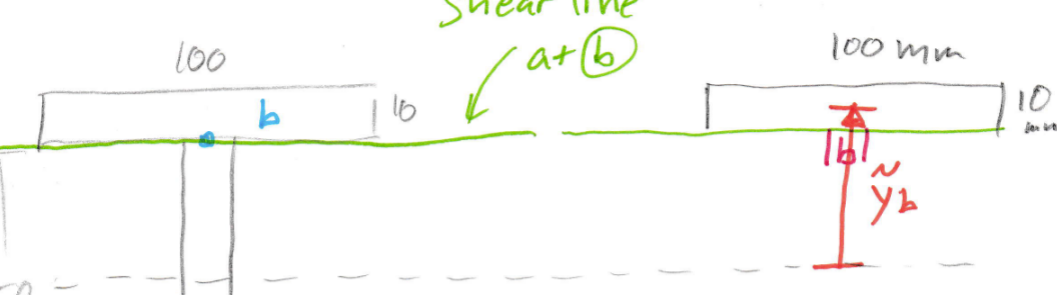 shear line
a+b
100
b
10
100 mm
10
mm
b
ỹb